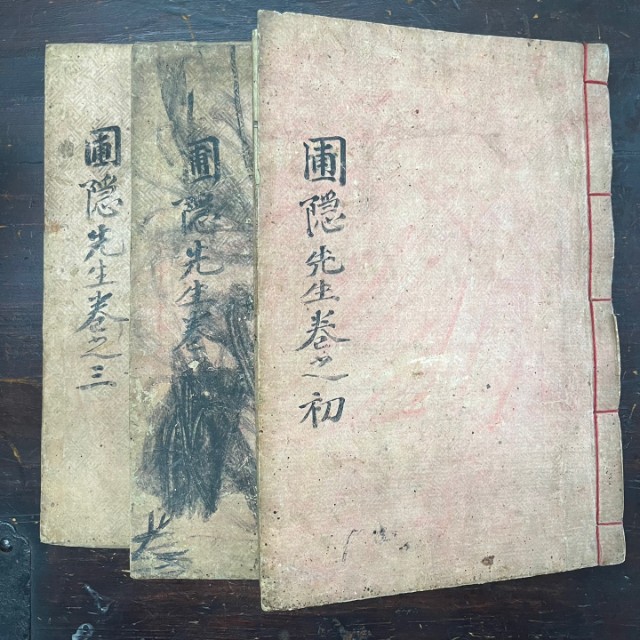 圃隠先生卷之初
圃隠先生卷
圃隠先生卷之三